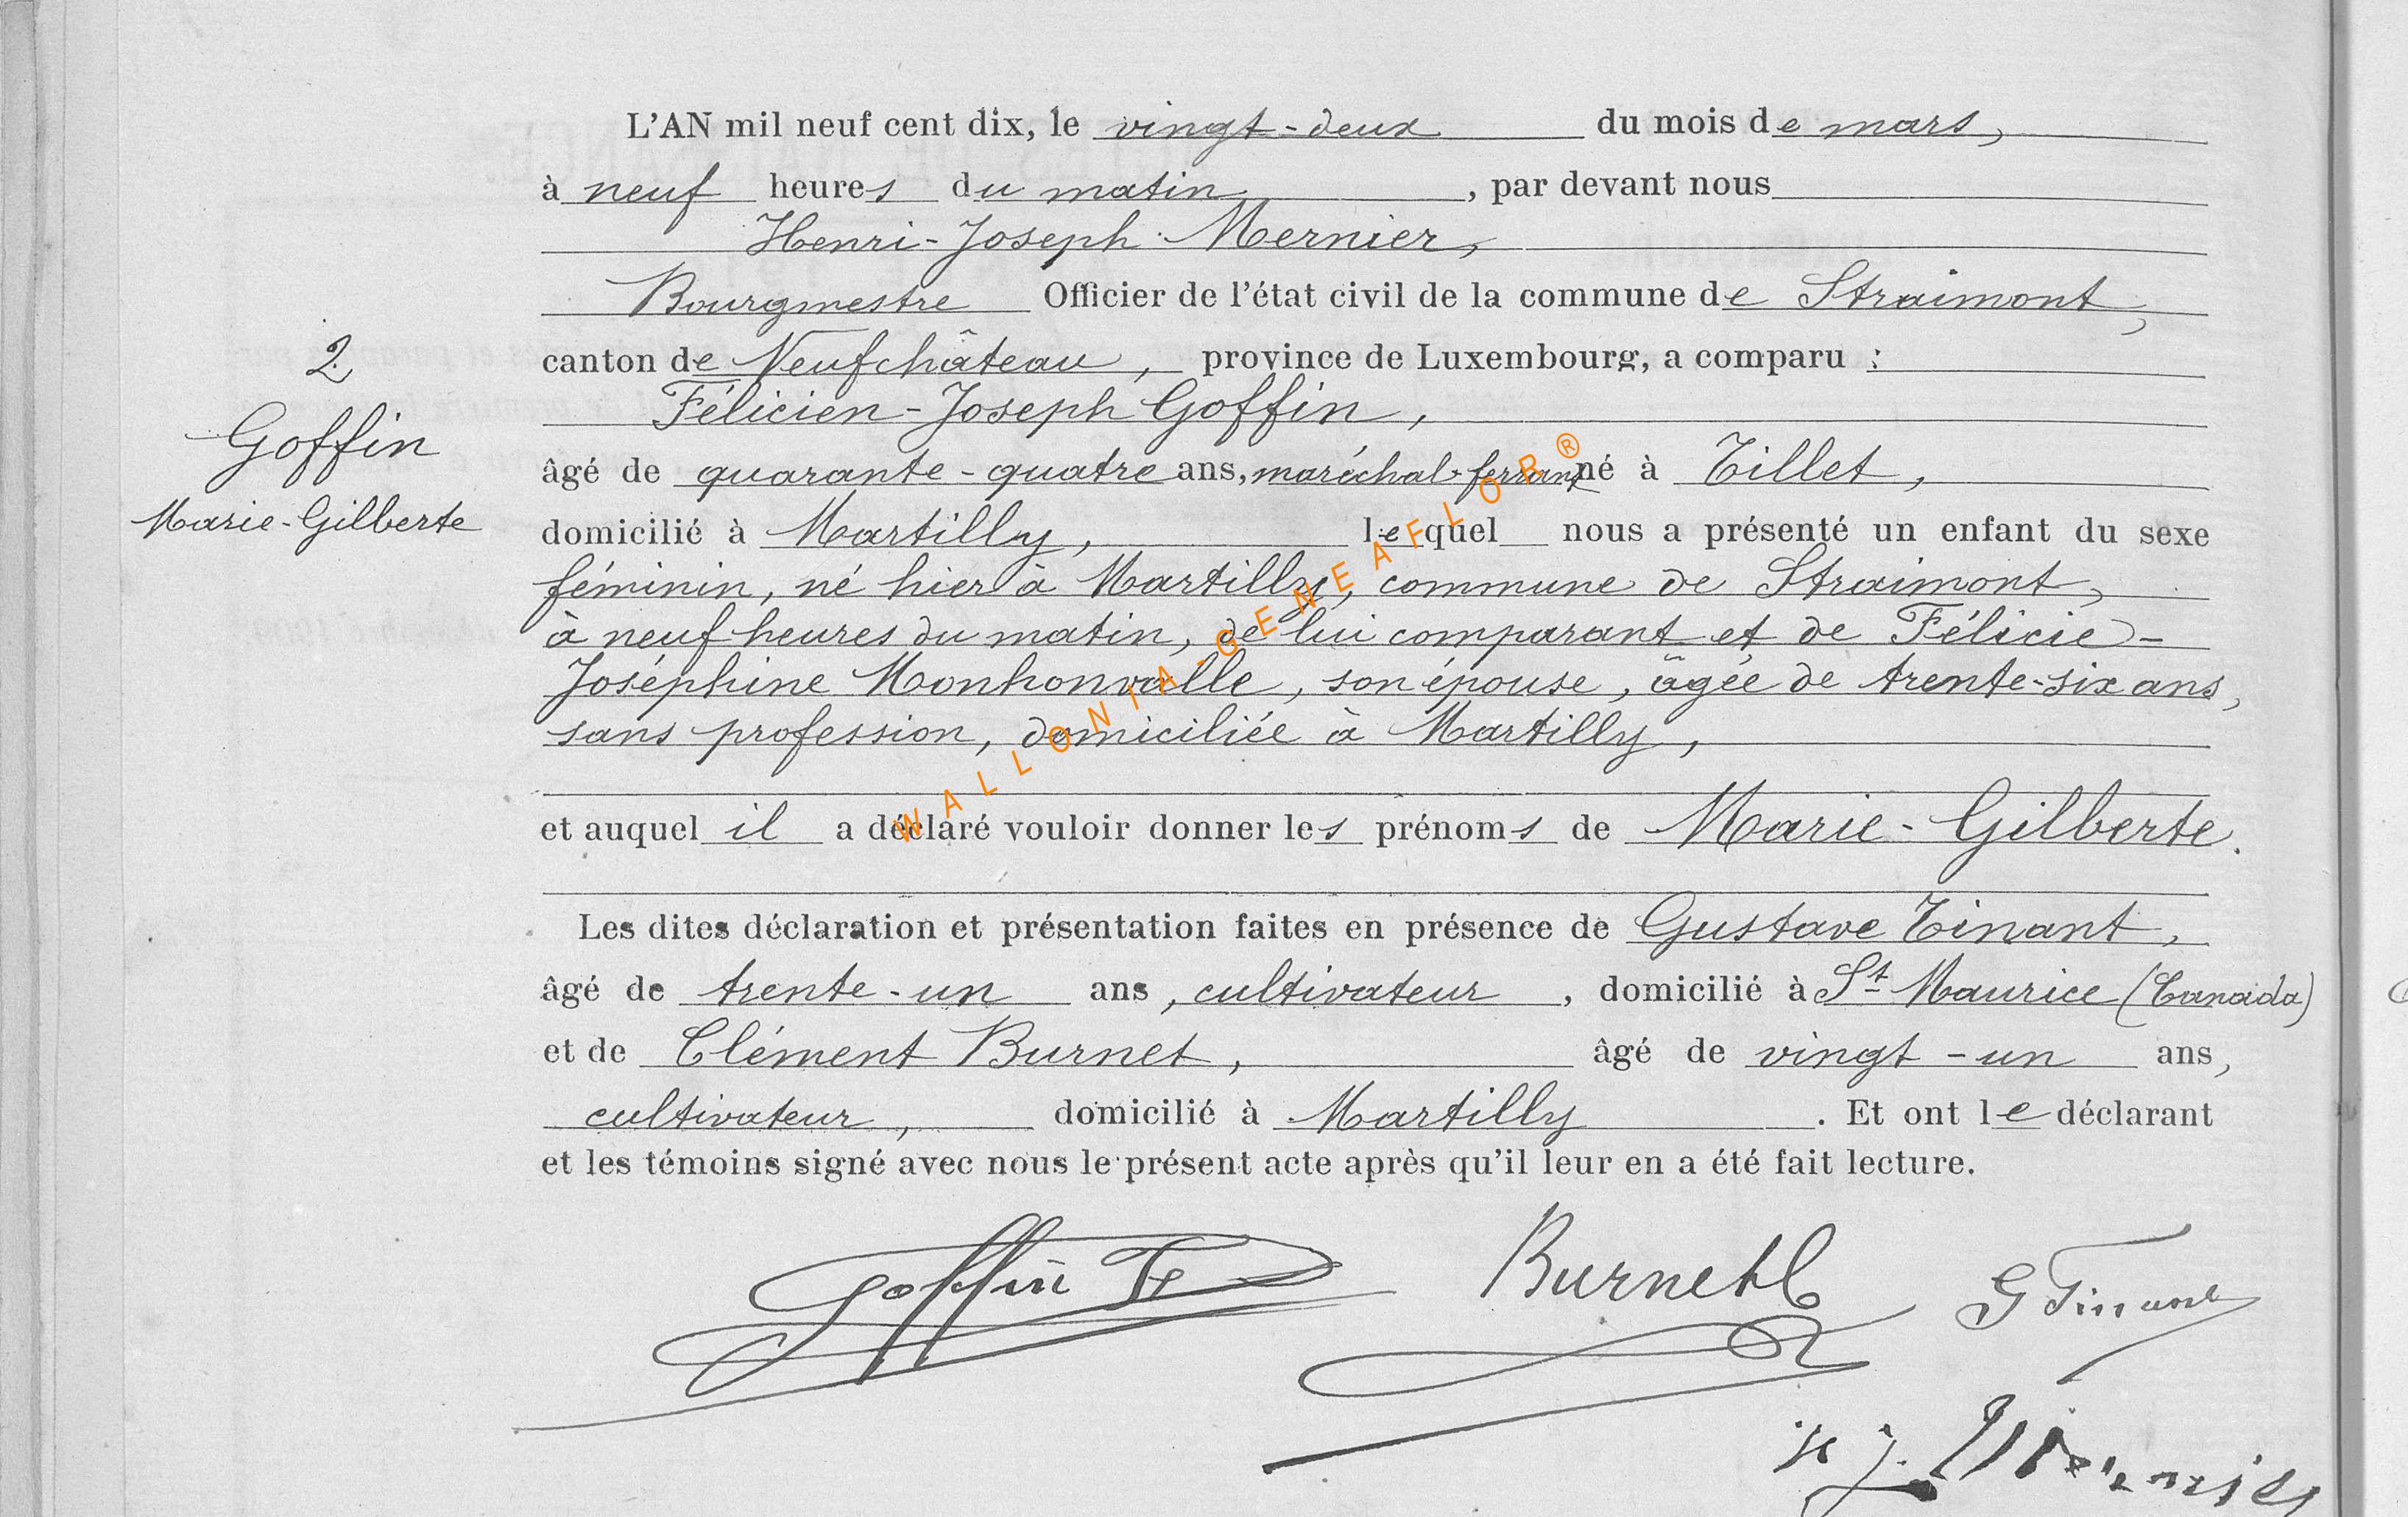 L'AN mil neuf cent dix, le vingt-deux du mois de mars,
à neuf heures du matin, par devant nous
Henri-Joseph Mernier,
Bourgmestre Officier de l'état civil de la commune de Straimont,
canton de Neufchâteau, province de Luxembourg, a comparu :
Félicien-Joseph Goffin,
âgé de quarante-quatre ans, maréchal-ferrant né à Tillet,
domicilié à Martilly, lequel nous a présenté un enfant du sexe
féminin, né hier à Martilly, commune de Straimont,
à neuf heures du matin, de lui comparant et de Félicie-
Joséphine Monhonvalle, son épouse, âgée de trente-six ans,
sans profession, domiciliée à Martilly,
et auquel il a déclaré vouloir donner les prénoms de Marie-Gilberte.
Les dites déclaration et présentation faites en présence de Gustave Tinant,
âgé de trente-un ans, cultivateur, domicilié à St Maurice (Canada)
et de Clément Burnet, âgé de vingt-un ans,
cultivateur, domicilié à Martilly. Et ont le déclarant
et les témoins signé avec nous le présent acte après qu'il leur en a été fait lecture.
2
Goffin
Marie-Gilberte
Goffin F
Burnet C
G Tinant
H J Mernier
WALLONIA-GENEAFLOR®